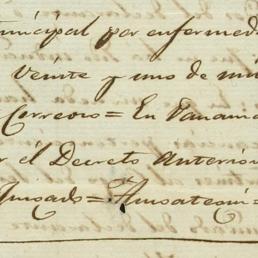 unicipal por enfermed
Veinte y uno de mil
Correoso = En Panamá
el Decreto Anterior
Quesada = Amoategui =